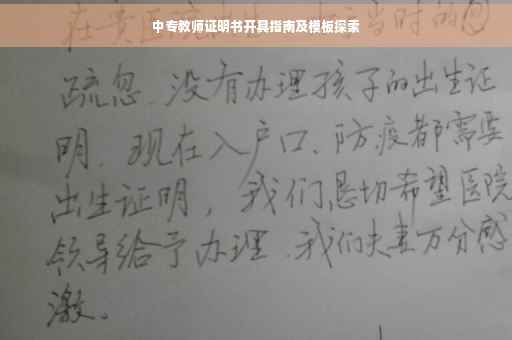 中专教师证明书开具指南及模板探索
当时的
疏忽.没有办理孩子的出生证
明.现在入户口、防疫都需要
出生证明，我们恳切希望医院
领导给予办理.我们夫妻万分感
激。